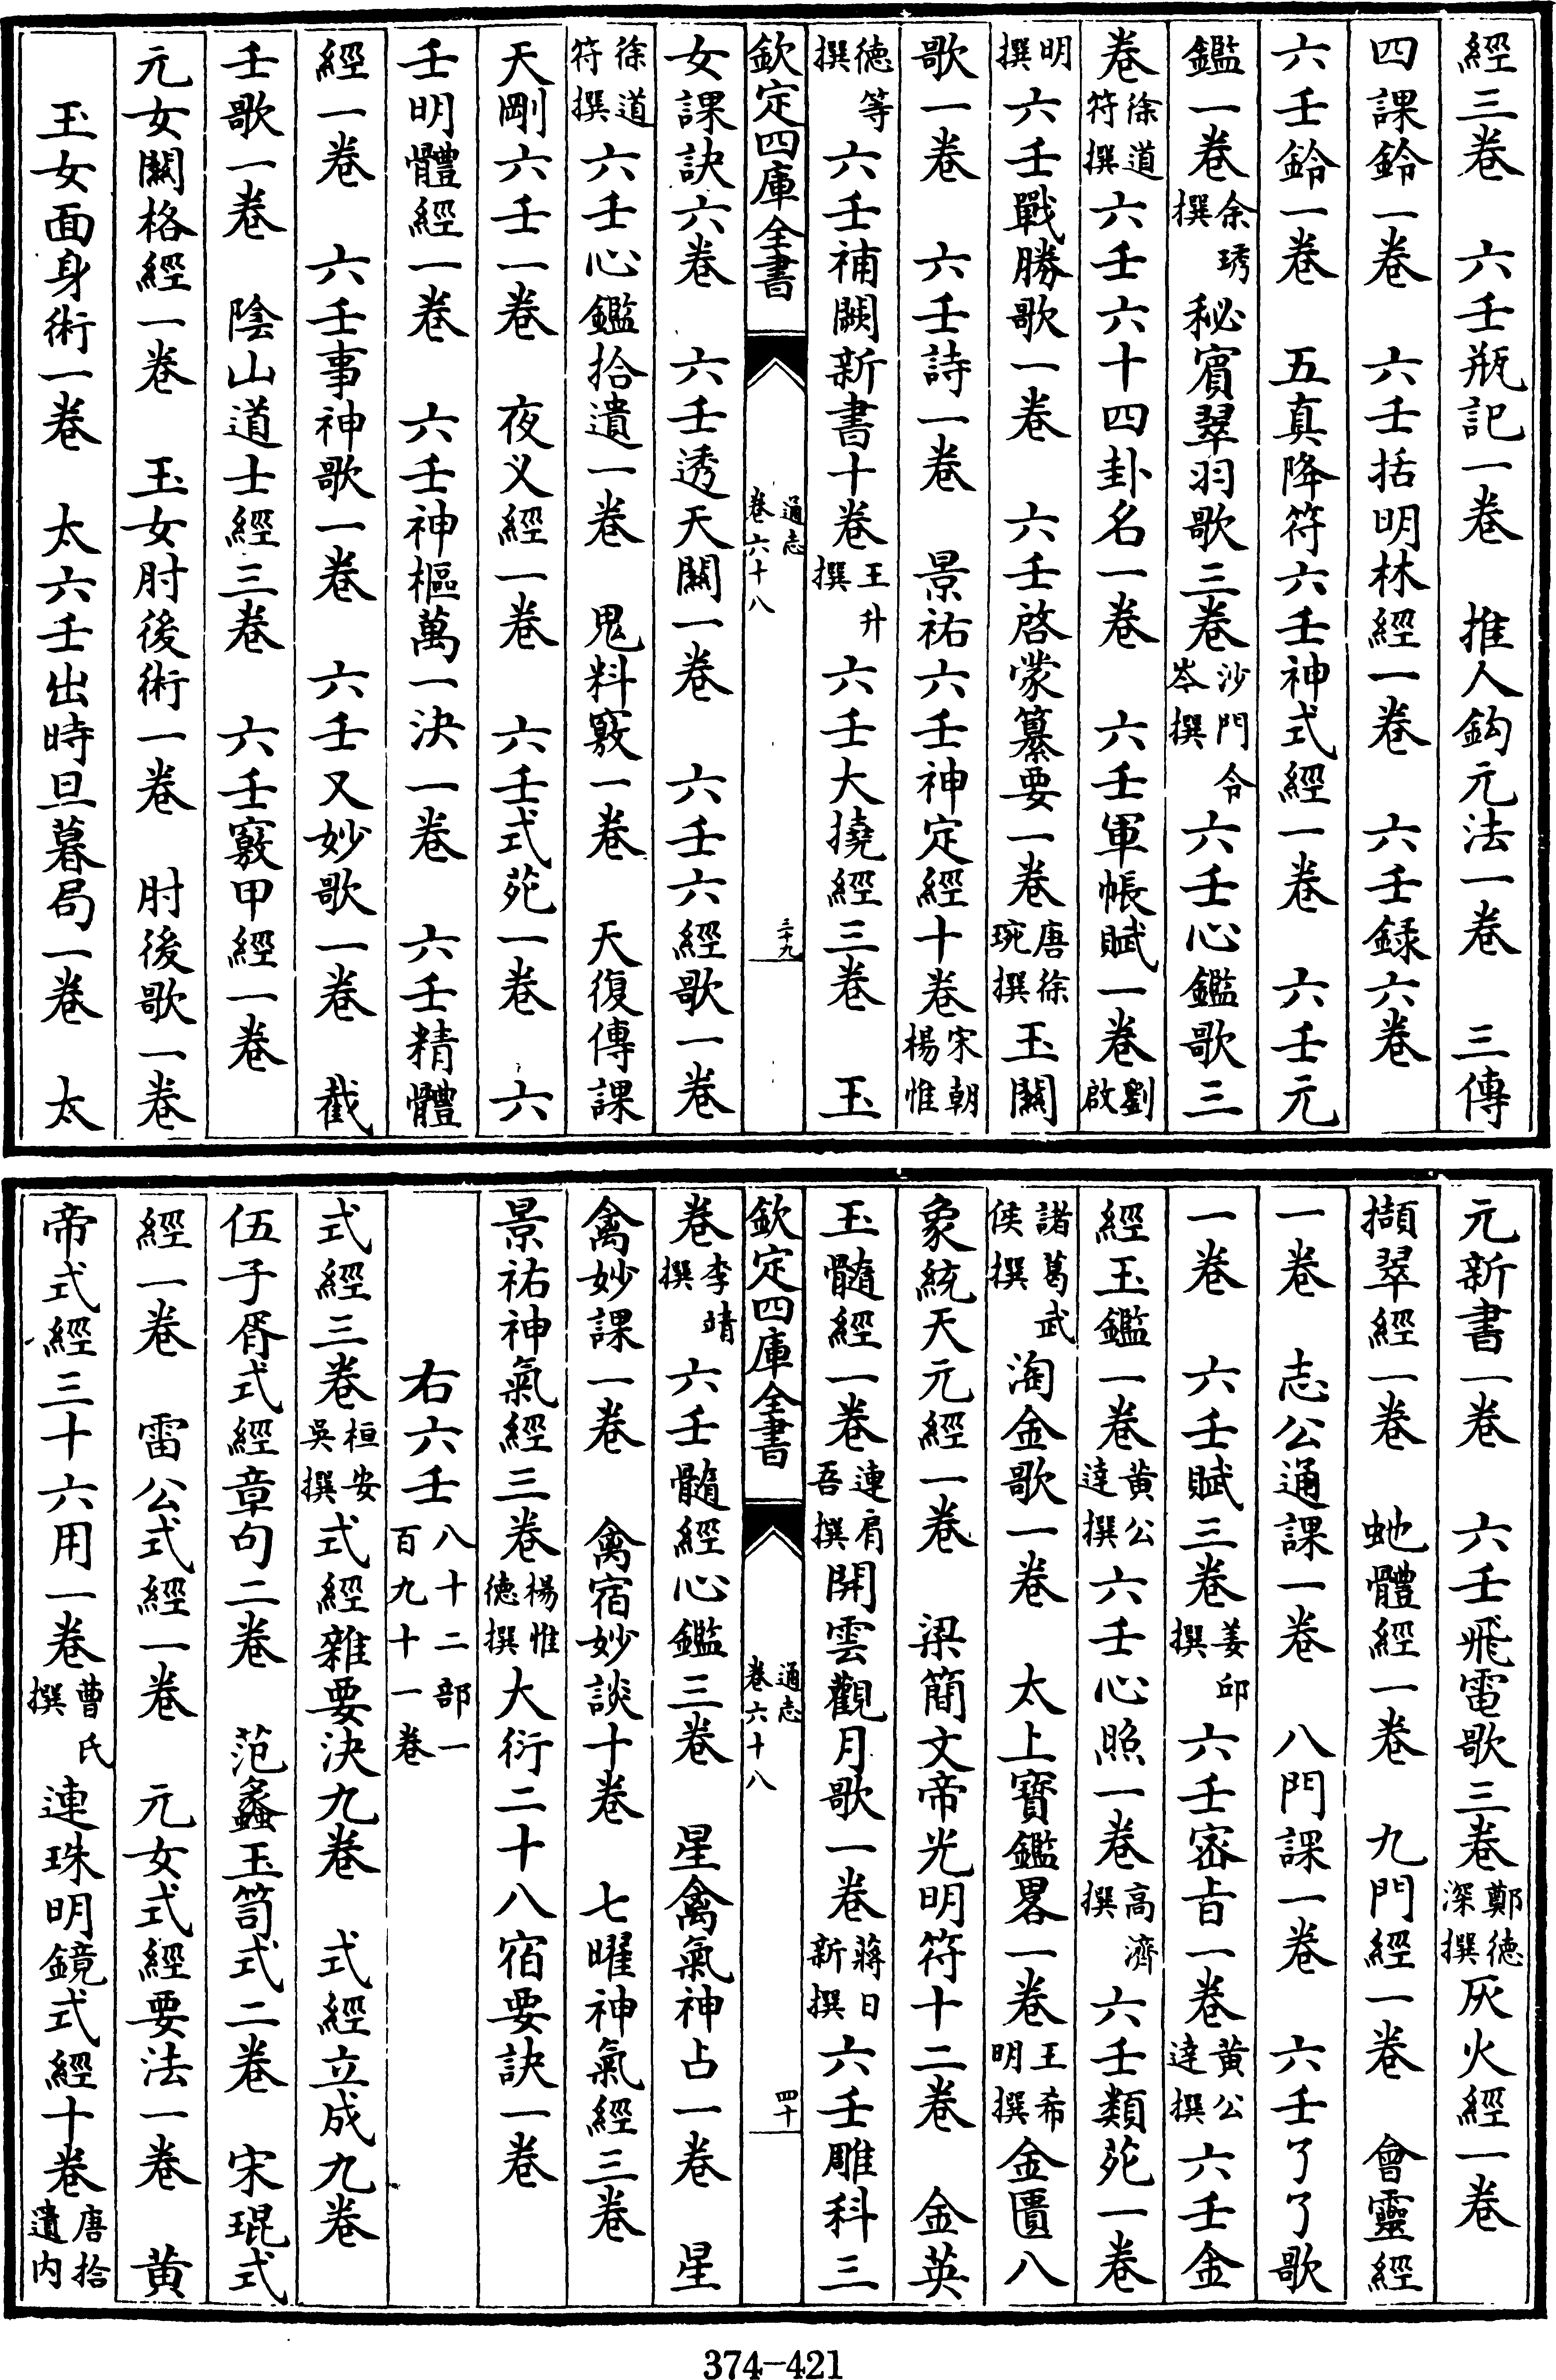 經三卷　六壬瓶記一卷　推人鈎元法一卷　三傳
四課鈐一卷　六壬括明林經一卷　六壬録六卷
六壬鈐一卷　五真降符六壬神式經一卷　六壬元
鑑一卷余琇撰秘寶翠羽歌三卷沙門令岑撰六壬心鑑歌三
卷徐道符撰六壬六十四卦名一卷　六壬軍帳賦一卷劉啟
明撰六壬戰勝歌一卷　六壬啓蒙纂要一卷唐徐琬撰玉關
歌一卷　六壬詩一卷　景祐六壬神定經十卷宋朝楊惟
德等撰六壬補闕新書十卷王升撰六壬大撓經三卷　玉
欽定四庫全書　通志卷六十八　三十九
女課訣六卷　六壬透天關一卷　六壬六經歌一卷
徐道符撰六壬心鑑拾遺一卷　鬼料竅一卷　天復傳課
天剛六壬一卷　夜义經一卷　六壬式苑一卷　六
壬明體經一卷　六壬神樞萬一決一卷　六壬精體
經一卷　六壬事神歌一卷　六壬又妙歌一卷　截
壬歌一卷　陰山道士經三卷　六壬竅甲經一卷
元女關格經一卷　玉女肘後術一卷　肘後歌一卷
玉女面身術一卷　太六壬出時旦暮局一卷　太
元新書一卷　六壬飛電歌三卷鄭德深撰灰火經一卷
擷翠經一卷　虵體經一卷　九門經一卷　會靈經
一卷　志公通課一卷　八門課一卷　六壬了了歌
一卷　六壬賦三卷姜邱撰六壬宻㫖一卷黄公達撰六壬金
經玉鑑一卷黄公達撰六壬心照一卷高濟撰六壬類苑一卷
諸葛武侯撰淘金歌一卷　太上寳鑑畧一卷王希明撰金匱八
象統天元經一卷　梁簡文帝光明符十二卷　金英
玉髓經一卷連肩吾撰開雲觀月歌一卷蔣日新撰六壬雕科三
欽定四庫全書　通志卷六十八　四十
卷李靖撰六壬髓經心鑑三卷　星禽氣神占一卷　星
禽妙課一卷　禽宿妙談十卷　七曜神氣經三卷
景祐神氣經三卷楊惟德撰大衍二十八宿要訣一卷
右六壬八十二部一百九十一卷
式經三卷桓安吳撰式經雜要決九卷　式經立成九卷
伍子胥式經章句二卷　范蠡玉笥式二卷　宋琨式
經一卷　雷公式經一卷　元女式經要法一卷　黄
帝式經三十六用一卷曹氏撰連珠明鏡式經十卷唐拾遺内
374-421